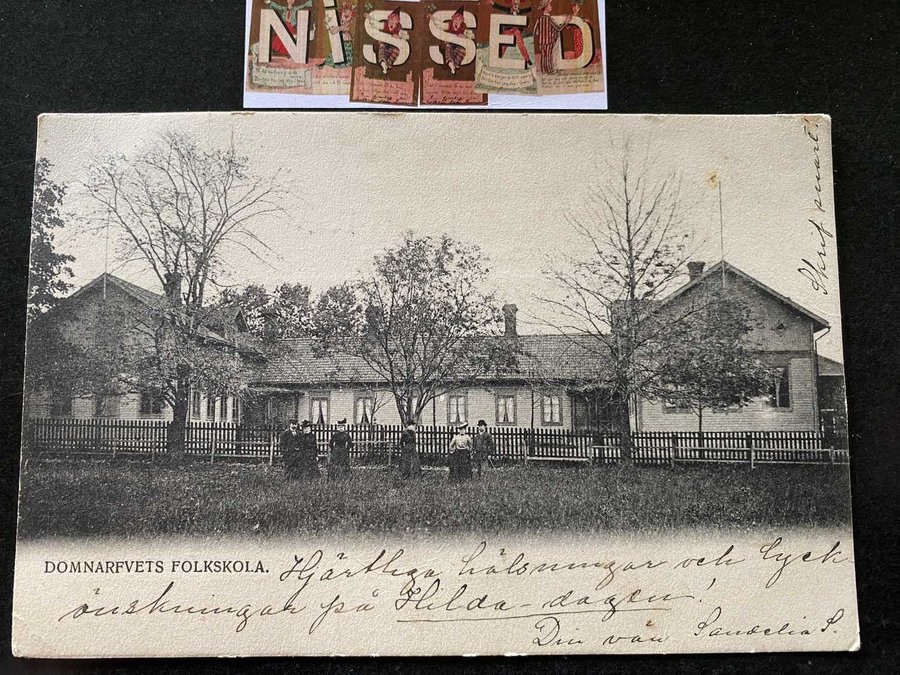 NISSED
Skrif snart!
DOMNARFVETS FOLKSKOLA.
Hjärtliga hälsningar och lyck
önskningar på Hilda-dagen!
Din vän Sandelia S.